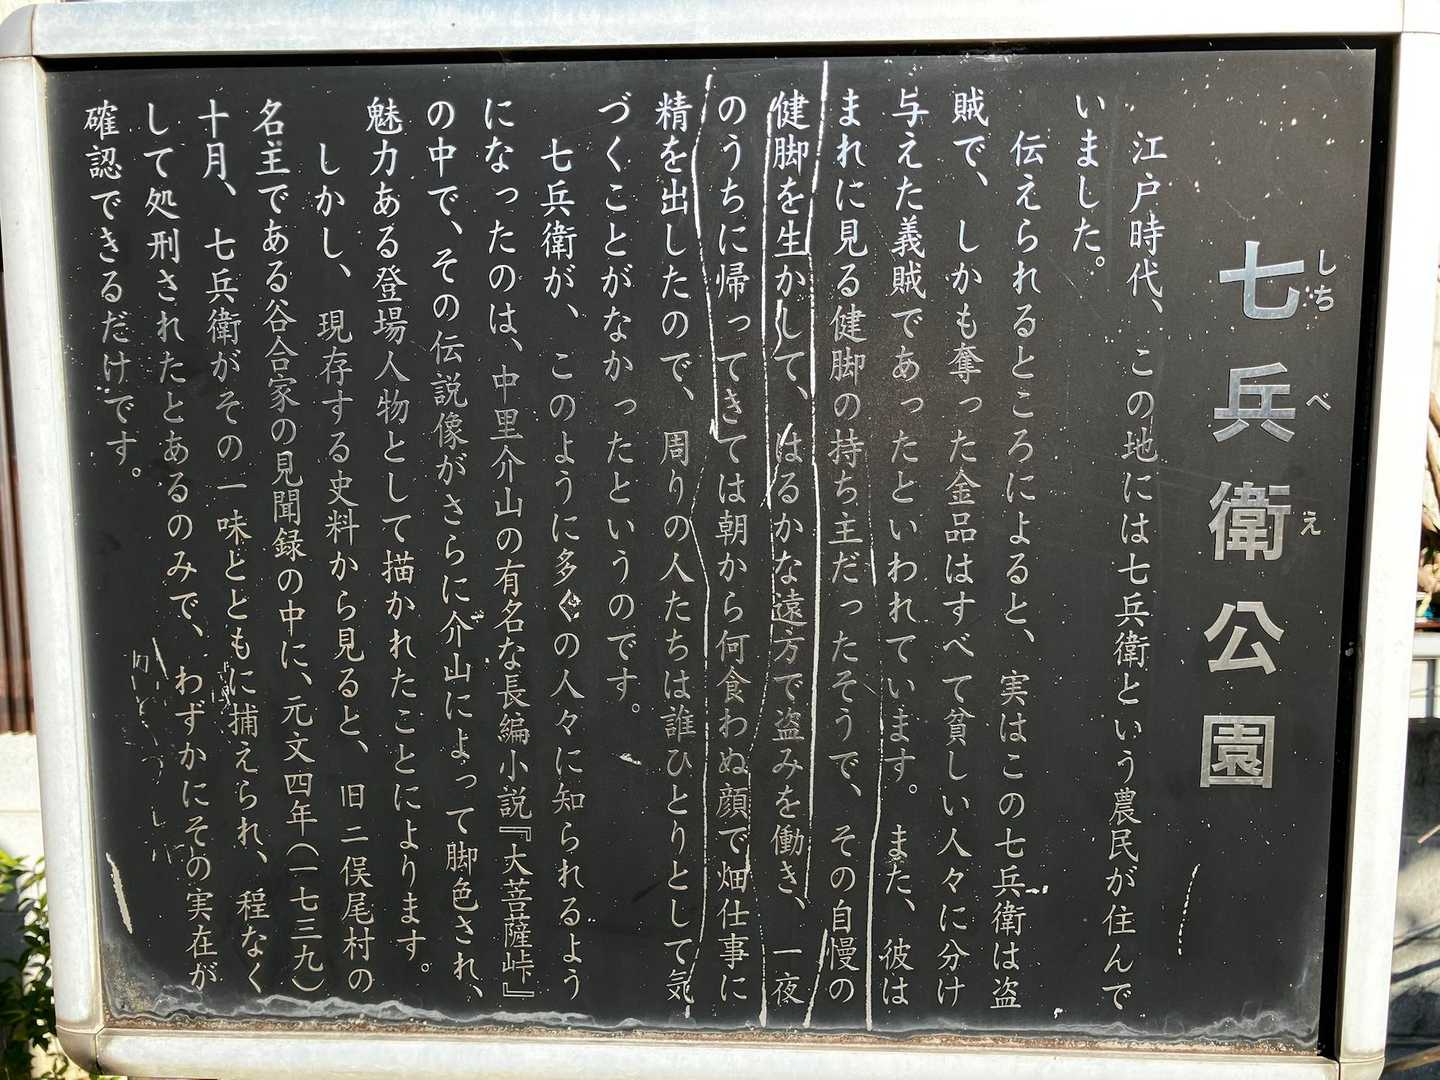 七兵衛公園
しちべえ
江戸時代、この地には七兵衛という農民が住んで
いました。
伝えられるところによると、実はこの七兵衛は盗
賊で、しかも奪った金品はすべて貧しい人々に分け
与えた義賊であったといわれています。また、彼は
まれに見る健脚の持ち主だったそうで、その自慢の
健脚を生かして、はるかな遠方で盗みを働き、一夜
のうちに帰ってきては朝から何食わぬ顔で畑仕事に
精を出したので、周りの人たちは誰ひとりとして気
づくことがなかったというのです。
七兵衛が、このように多くの人々に知られるよう
になったのは、中里介山の有名な長編小説『大菩薩峠』
の中で、その伝説像がさらに介山によって脚色され、
魅力ある登場人物として描かれたことによります。
しかし、現存する史料から見ると、旧二俣尾村の
名主である谷合家の見聞録の中に、元文四年（一七三九）
十月、七兵衛がその一味とともに捕えられ、程なく
して処刑されたとあるのみで、わずかにその実在が
確認できるだけです。